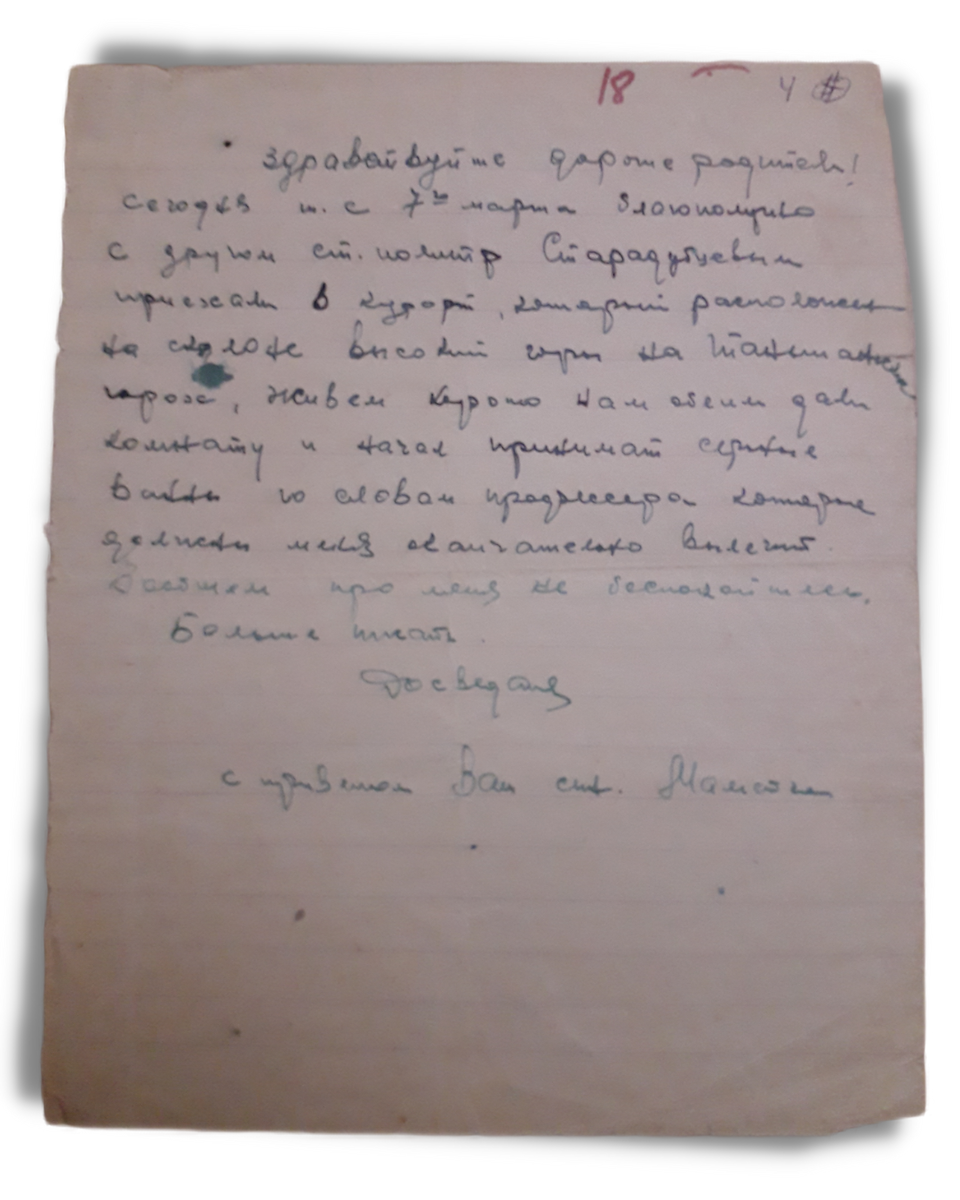 18 4
Здравствуйте дороте родители!
Сегодня т. с 7го марта благополучно
с другом ст. политр Старадубцевым
приехали в курорт, которрий расположен
на склоне высокий горы на Таньшанских
горах, живем хорошо нам обеим дали
комнату и начал принимат серные
ванны по словам профессера которые
должны меня окончательно вылечит.
Вообщем про меня не беспокойтесь.
Больше писать.
Досведаня
с приветом Ваш сын.